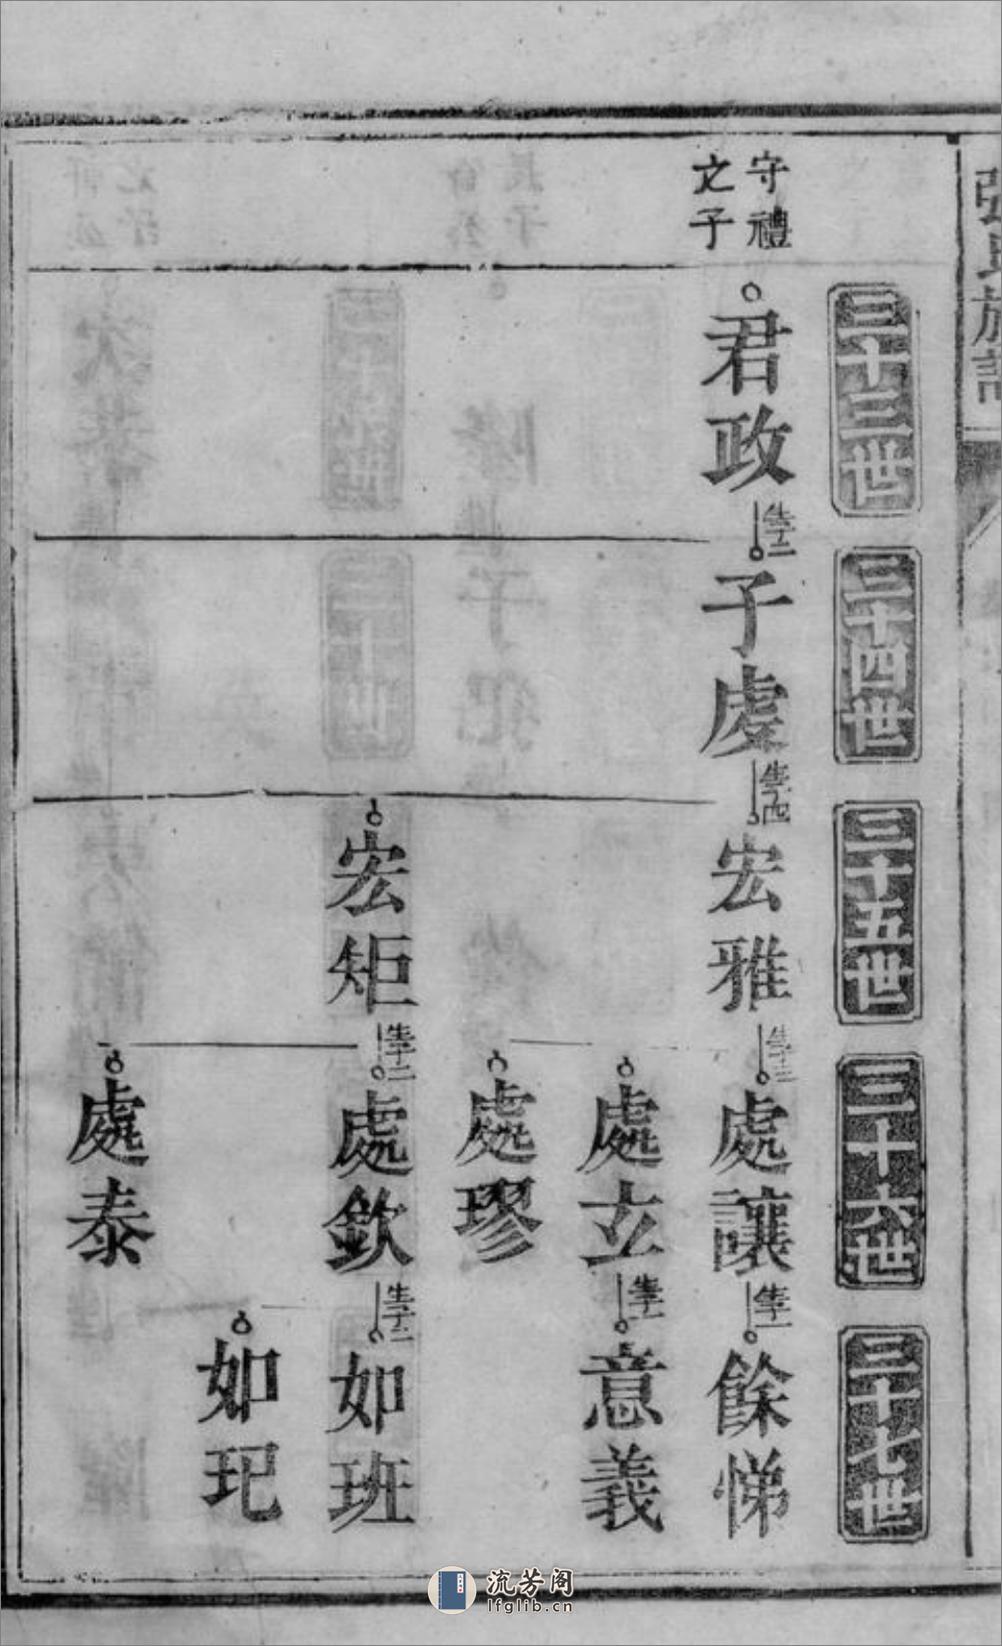 守禮
之子
三十三世
三十四世
三十五世
三十六世
三十七世
君政
生子二
子虔
生子四
宏雅
生子三
處讓
生子一
餘悌
處立
生子一
意義
處璆
宏矩
生子二
處欽
生子二
如班
如玘
處泰
流芳阁
lfglib.cn